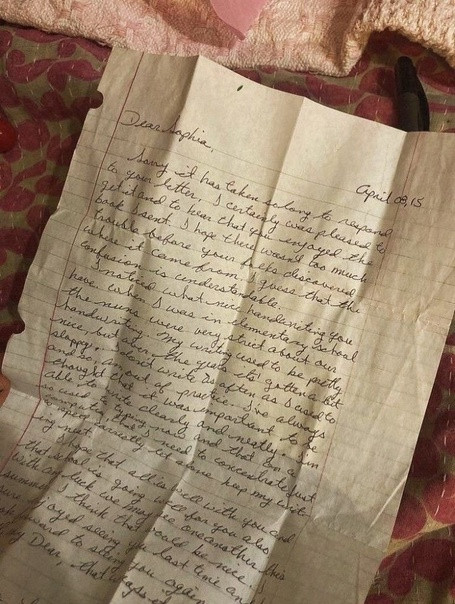 Dear Sophia,
April 09, 15
Sorry it has taken so long to respond
to your letter, I certainly was pleased to
get it and to hear that you enjoyed the
book I sent. I hope there wasn't too much
trouble before your folks discovered
where it came from. I guess that the
confusion is understandable.
I noticed what nice handwriting you
have. When I was in elementary school
the nuns were very strict about our
handwriting. My writing used to be pretty
nice, but over the years its' gotten a bit
sloppy. I don't write as often as I used to
and so, am out of practice. I've always
thought that it was important to be
able to write clearly and neatly. I am
so used to typing now and that on a
computer that I need to concentrate just
to simply keep my writ-
ing
I hope that all is well with you and
that school is going well for you also.
With any luck we may see one another this
summer. I think that would be nice. I
sure enjoyed seeing you last time and
look forward to seeing you again.
My Dear, that